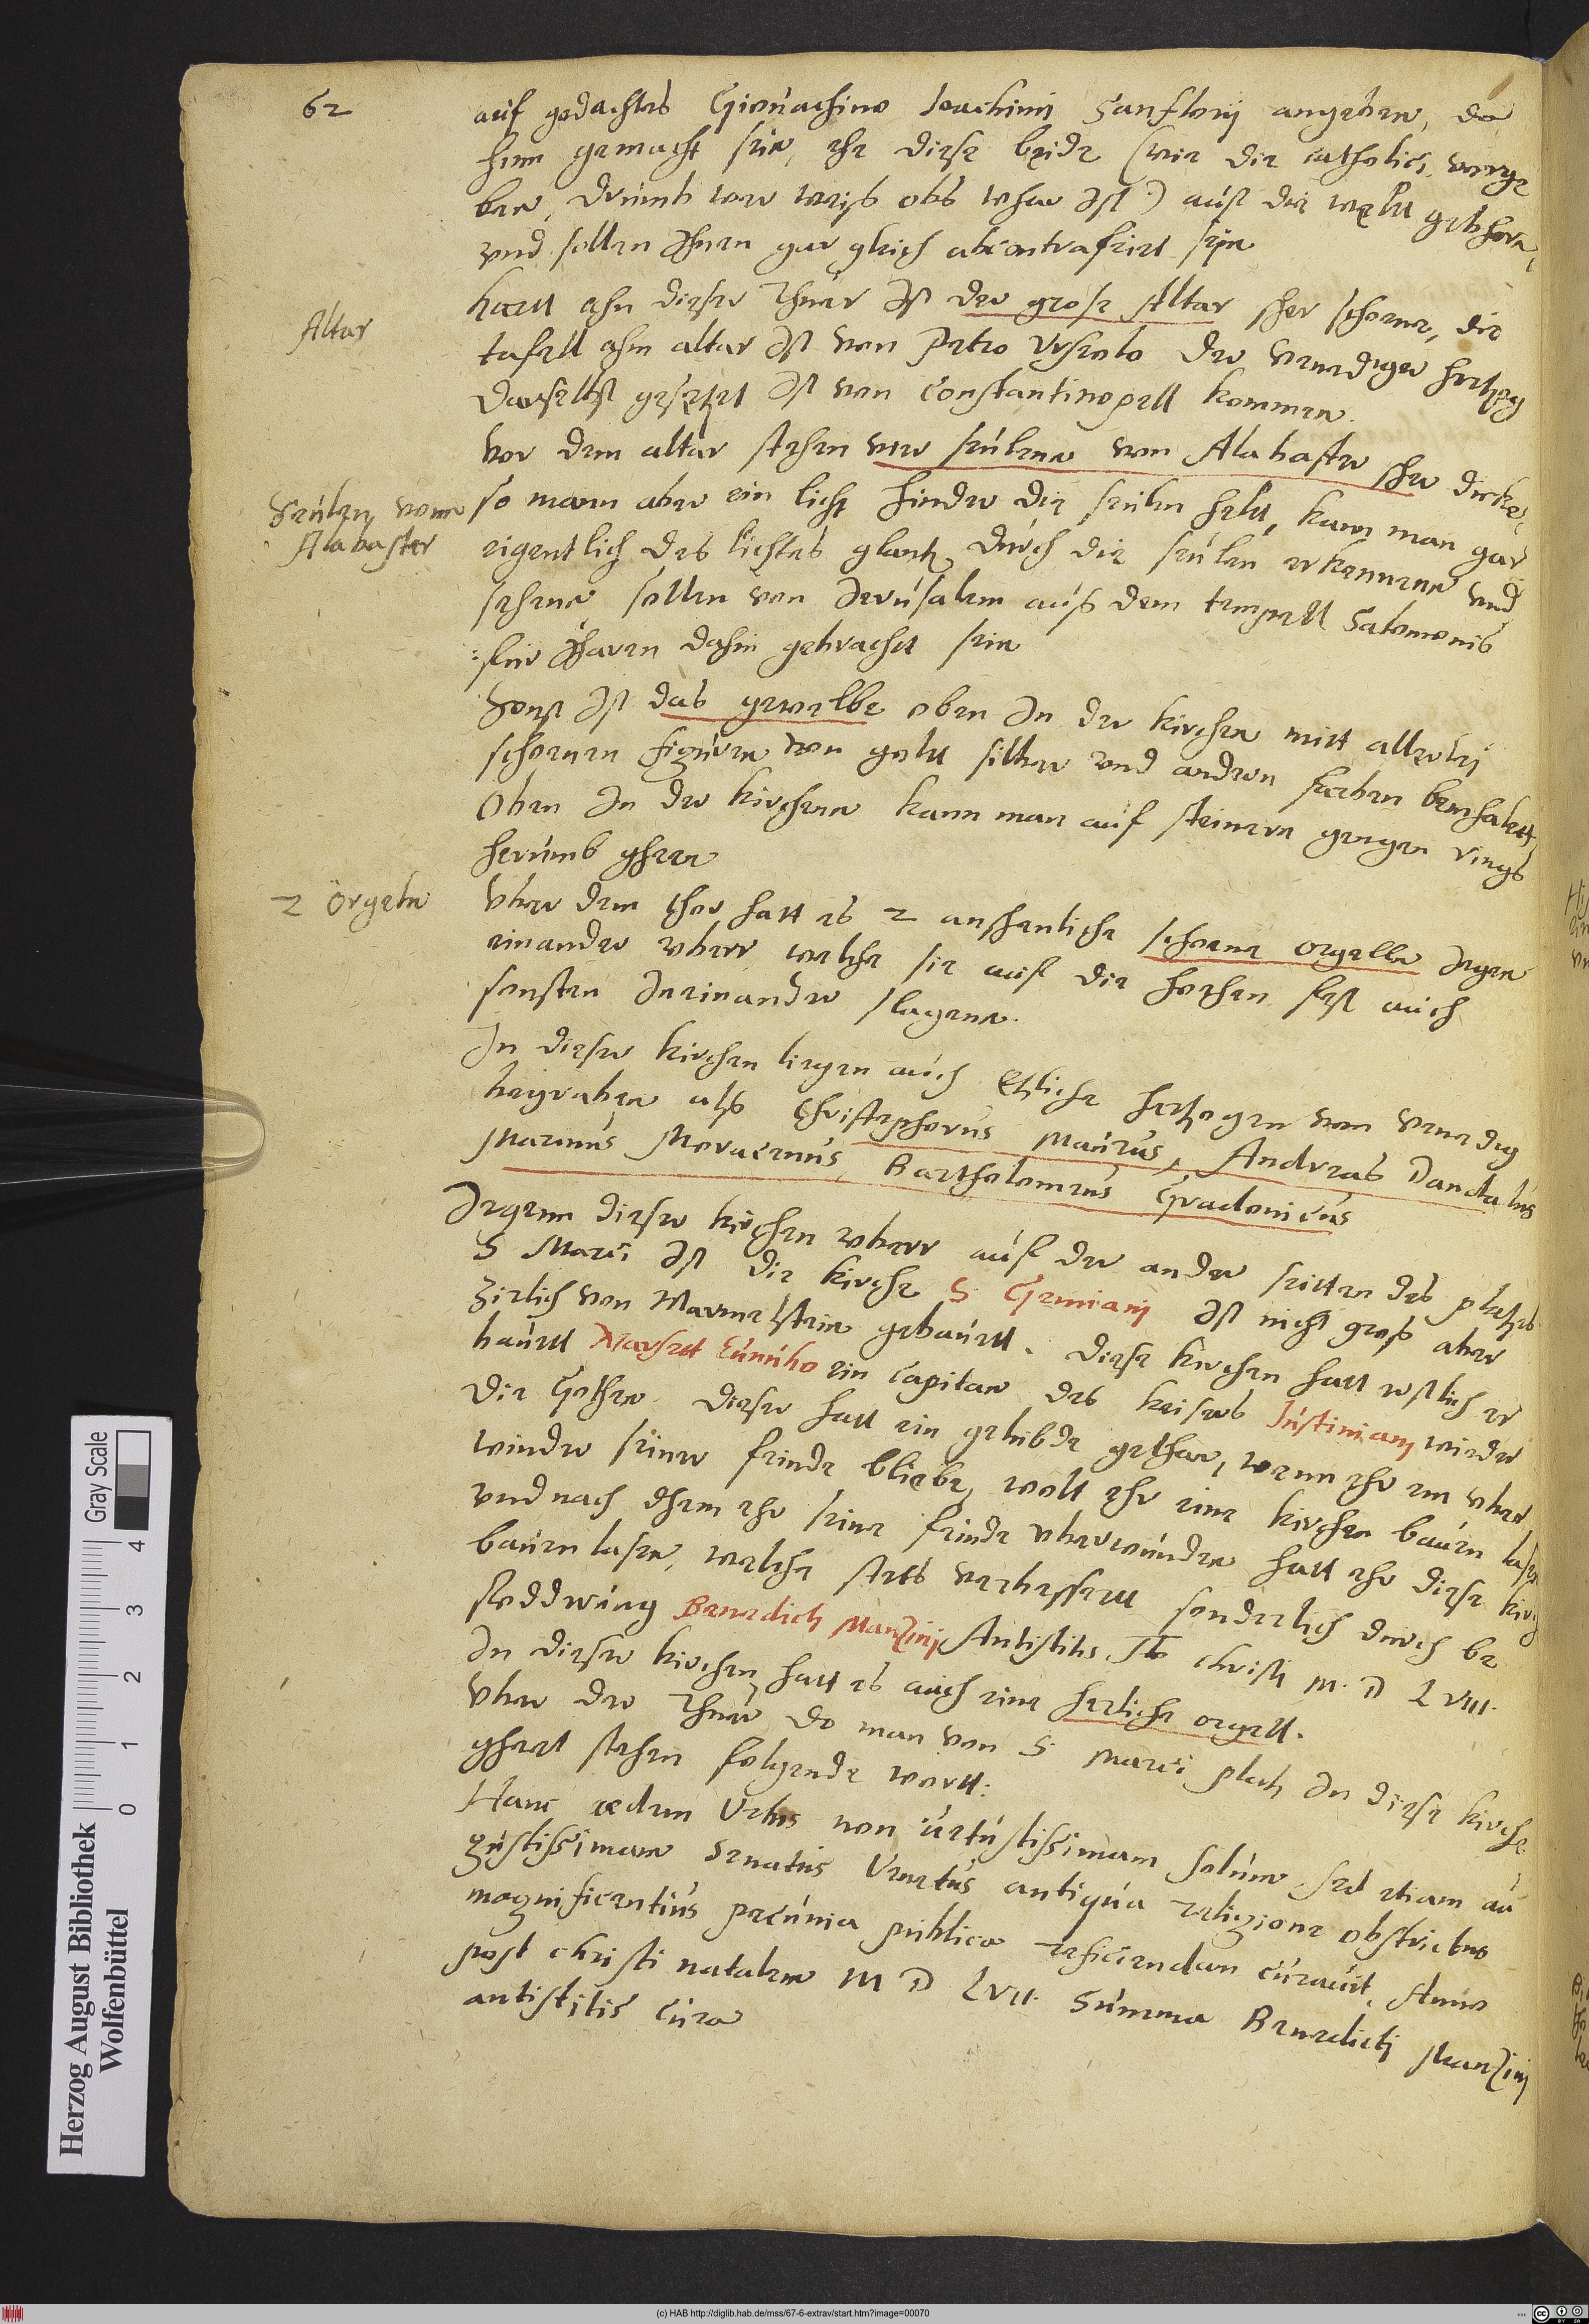 62
auf gedachtes Giouachino Ioachimi Sanflorij angeben, da
hinn gemacht sein, ehe diese beide (wie die catholici vorge
ben, drumb wer weiß obs whar ist) auf die weltt gebhorn,
vnd sollen ihnen gar gleich abcontrafeiett sein
Altar
hartt ahn dieser thuer ist der grose Altar sher schoene, die
tafell ahm altar ist von Petro Vrseolo der Venediger hertzog
daselbst gesetzet ist von Constantinopell kommen.
vor dem altar stehen vier seulenn von Alabaster sher dicke,
Seulen vonn
Alabaster
so mann aber ein licht hinder die seulen heltt, kann man gar
eigentlich des lichtes glantz durch die seulen erkennenn vnd
sehenn sollen von Jerusalem auß dem tempell Salomonis
fur jharen dahin gebrachtt sein
Sonst ist das gewelbe oben in der kirchen mitt allerley
schoenen figuren von goltt silber vnd andern farben bemhalett,
Oben in der kirchenn kann man auf steinern gengen rings
herumb ghenn
2 Orgeln
vber dem chor hatt es 2 anshenliche schoene orgelln iegen
einander vberr, welche sie auf die hochen fest auch
sonsten in einander slagenn.
In dieser kirchen liegen auch etzliche hertzogen von venedig
begraben als Christophorus Maurus, Andreas Dandalus
Marinus Moracenus, Bartholomeus Gradonicus
Iegenn dieser kirchen vberr auf der ander seitten des platzes
S Marci ist die kirche S. Geminianj ist nicht groß aber
zirlich von Marmelstein gebauett. diese kirchen hatt erstlich er
bauett Narset Eunuho ein Capitan des keisers Justinianj wieder
die Gothen. dieser hatt ein gelubde gethan, wenn ehr im vber
winder seiner feinde bliebe, wolt ehr eine kirchen bauen lasen
vnd nach dhem ehr seine feinde vberwunden hatt ehr diese kirch
bauen lasen, welche stets verbessertt sonderlich durch be
foddrung Benedicti Manzinj Antistitis Ao christi M. D LVIII.
In dieser kirchen hatt es auch eine herliche orgell.
vber der thuer do man von S Marci platz in diese kirche
gheet stehen folgende wortt:
Hanc aedem Vrbis non uetustissimam solum sed etiam au
gustissimam Senatus Venetus antiqua religione obstrictus
magnificentius pecunia publica reficiendam curauit, Anno
post christi natalem M D LVII. Summa Benedicti Manzinj
antistitis cura
Herzog August Bibliothek
Wolfenbüttel
Gray Scale
0 1 2 3 4
(c) HAB http://diglib.hab.de/mss/67-6-extrav/start.htm?image=00070